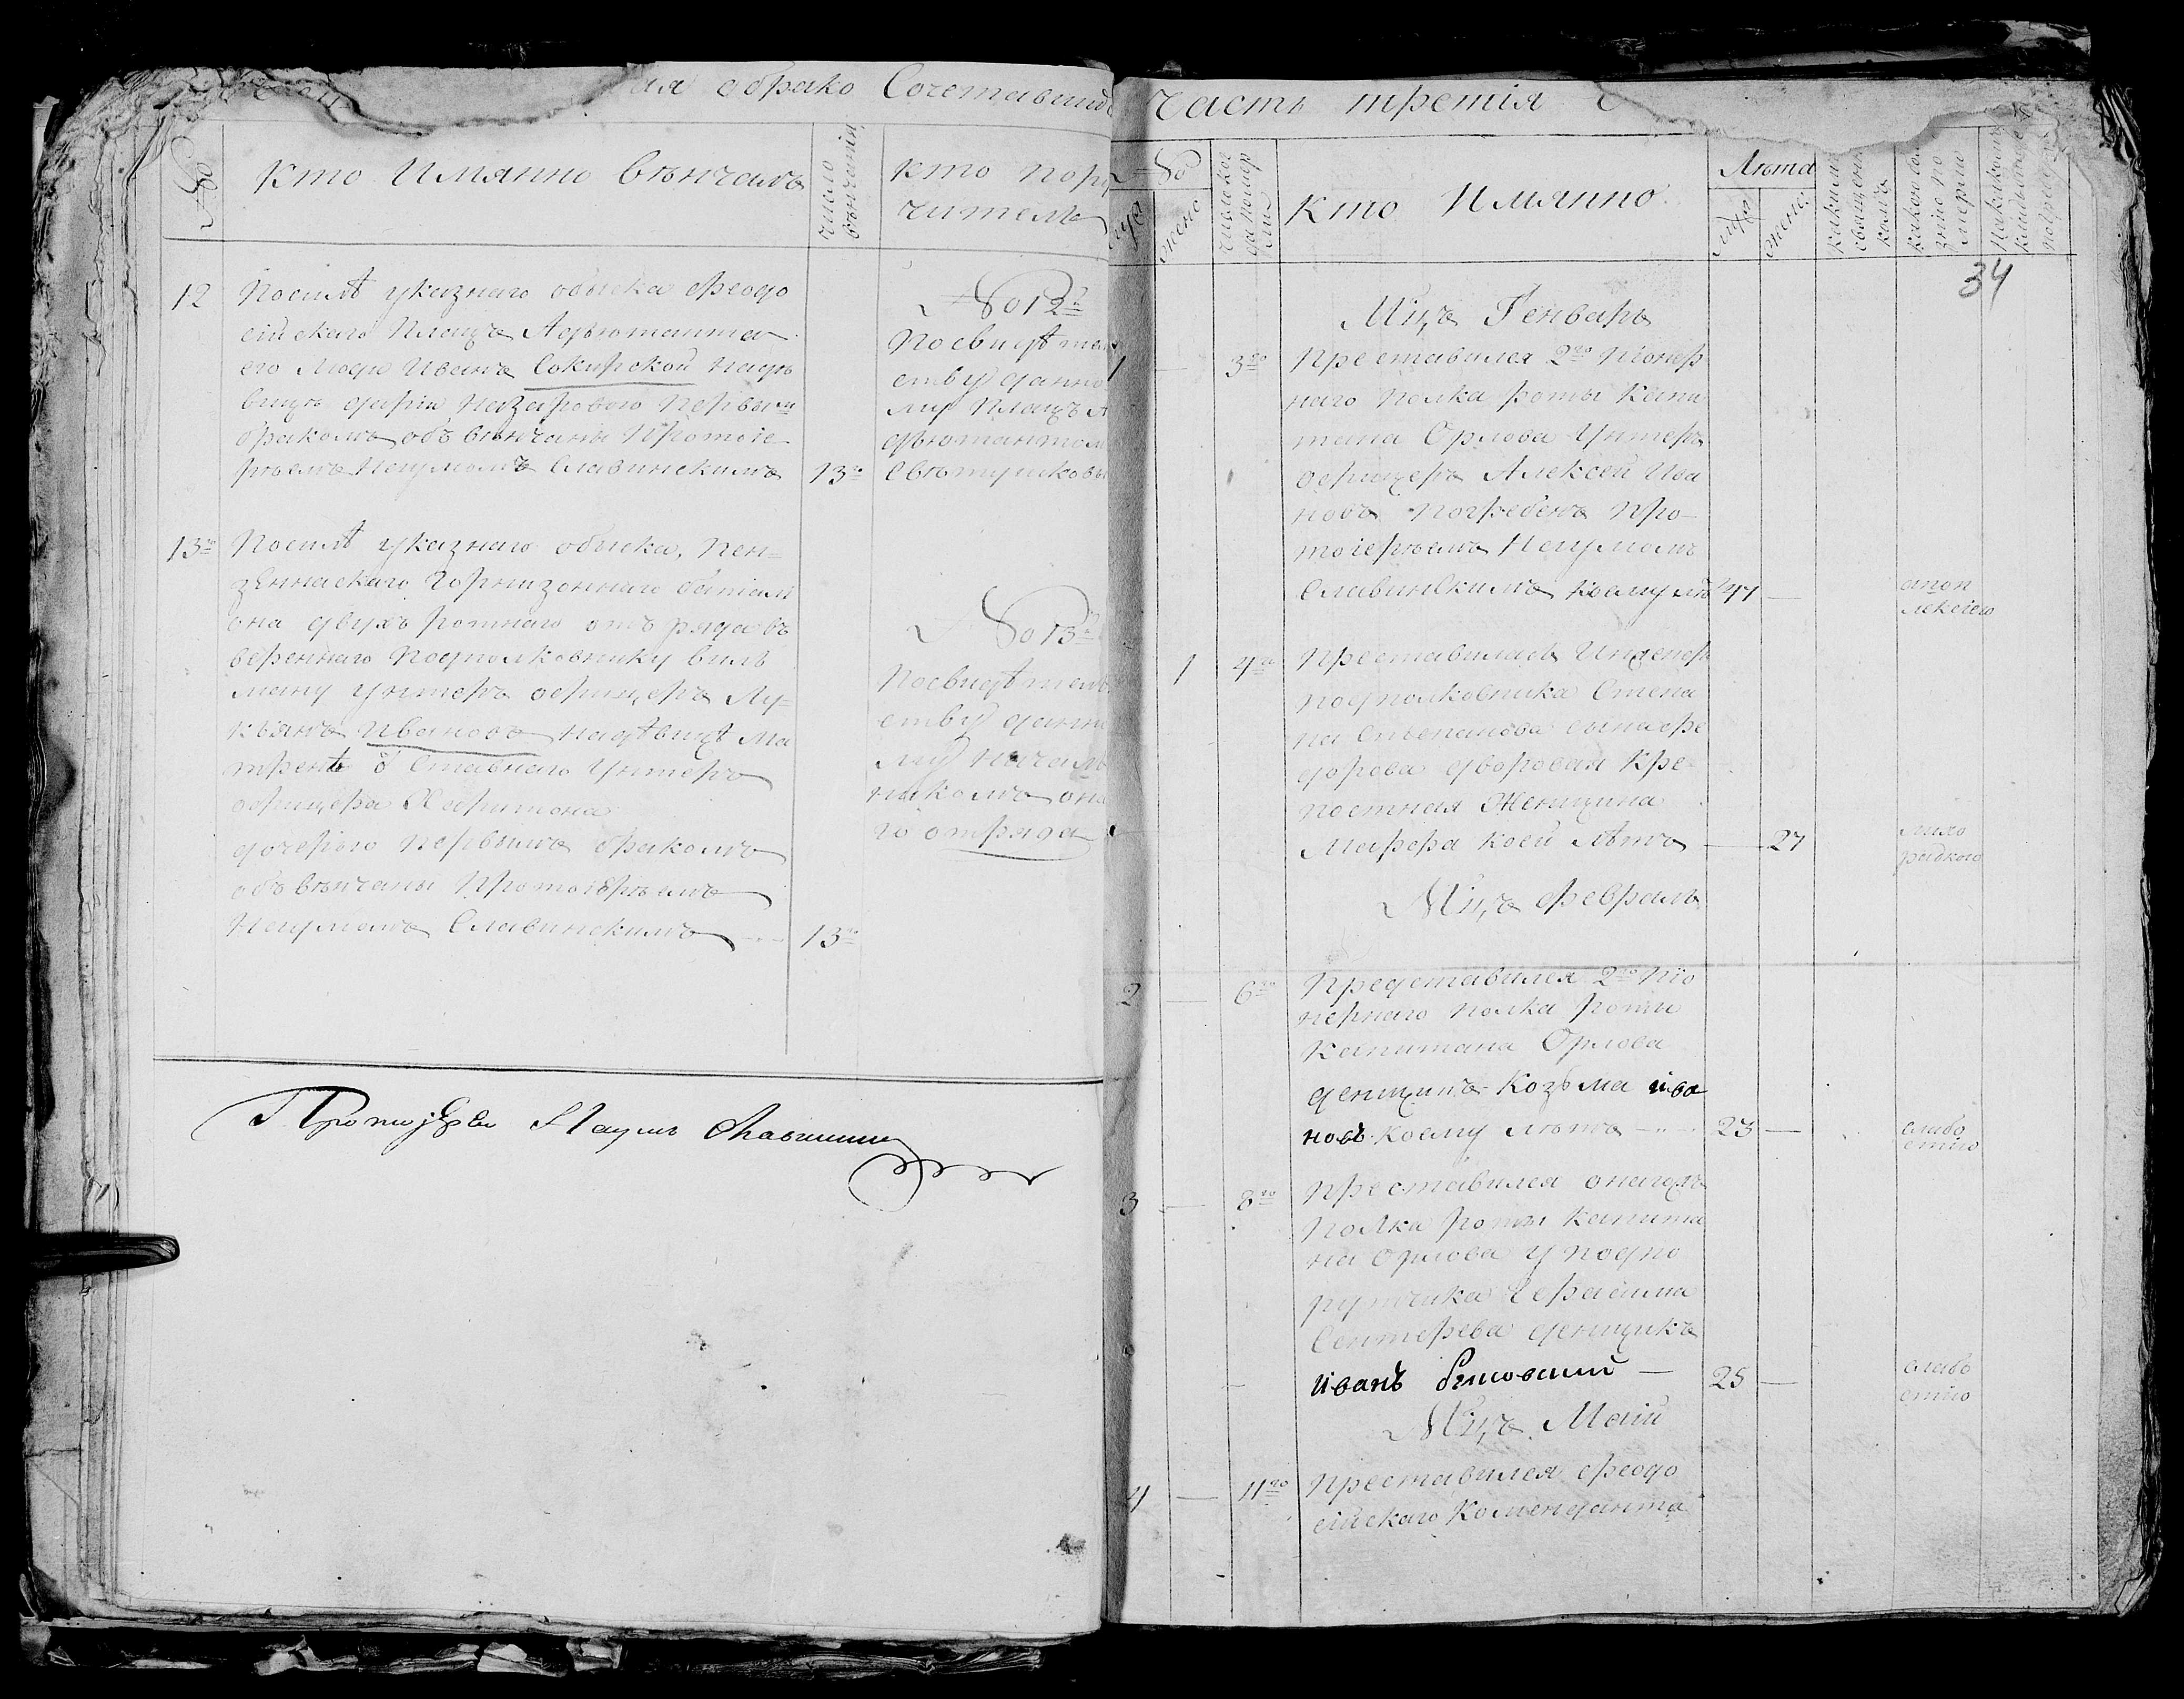 ая обрако Сочетавши
№
кто Имянно венчалъ
число венчанія
кто пору
чителъ
12
Послѣ указнаго обыска феодо
сійскаго Плацъ Адъютанта
его люди Иванъ Сокирской надѣ
вицѣ Назаровою Первым
бракомъ объ венчаны Протоіе
реемъ Неумомъ Славинскимъ
13го
№ 12й
Посвидѣтел
ству данно
му Плацъ А
дъютантом
13го
Послѣ указнаго обыска, Пен=
зеннаскаго Горнизоннаго баталі
она двухъ ротнаго отъ ряда въ
вереннаго Подполковнику вилъ
ману унтеръ офицеръ Лу=
кьянъ Ивановъ надѣвицѣ Ма
тренѣ о Ставнаго Унтеръ
офицера Харитона
дочерью Первымъ бракомъ
объ вѣнчаны Протоіереемъ
Неумомъ Славинскимъ
13го
№ 13й
Посвидѣтелъ
ству данно
му началь
никомъ она
го отряда
Протоіерей Наумъ Славинский
часть третія
34
№
муж
жено
числ
кто Имянно
Лѣта
муж
жено
какимъ священни
комъ
Мцъ Генварь
1
3го
Преставился 2го Піонер
наго Полка роты Капи
тана Орлова Унтеръ
офицеръ Алексей Ива
новъ Погребенъ Про-
тоіереемъ Неумомъ
Славинскимъ коему лѣ
47
апоп
лексіею
1
4го
Преставилась Инженеръ
подполковника Степа
на Степанова сына фе
дорова дворовая Кре=
постная Женщина
Марфа коей лѣтъ
27
лихо
радкою
Мцъ февраль
2
6го
Представился 2го Піо
нернаго полка роты
Капитана Орлова
денщикъ Козьма ива
новъ коему лѣтъ
23
слабо
стію
3
8го
Преставился онагожъ
Полка роты Капита
на Орлова у подпо
ручика Герасима
денщикъ
иванъ
25
слабо
стію
Мцъ Маій
4
11го
Преставился феодо
сійскаго Коменданта